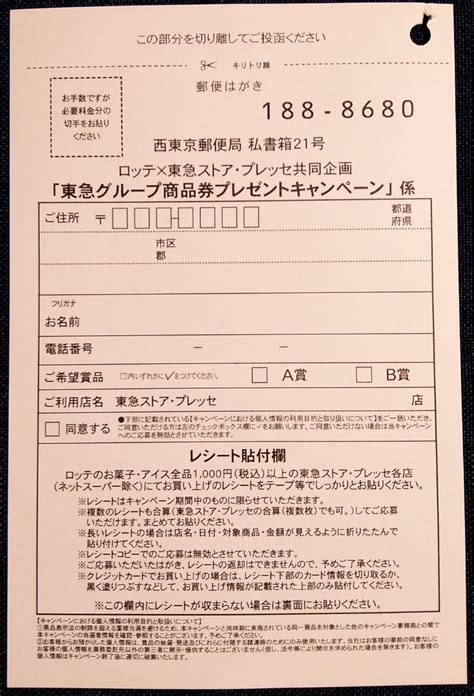 この部分を切り離してご投函ください
キリトリ線
郵便はがき
お手数ですが
必要料金分の
切手をお貼り
ください
188-8680
西東京郵便局 私書箱21号
ロッテ×東急ストア・プレッセ共同企画
「東急グループ商品券プレゼントキャンペーン」係
ご住所 〒 都道
府県
市区
郡
フリガナ
お名前
電話番号 － －
ご希望賞品 □内いずれかに✓をつけてください。 □ A賞 □ B賞
ご利用店名 東急ストア・プレッセ 店
□ 同意する
●下部に記載されている【キャンペーンにおける個人情報の利用目的と取り扱いについて】をご一読いただき、
ご同意いただける方は左のチェックボックス欄に✓をお願いします。ご同意いただけない場合は当キャンペーン
へのご応募を無効とさせていただきます。
レシート貼付欄
ロッテのお菓子・アイス全品1,000円(税込)以上の東急ストア・プレッセ各店
(ネットスーパー除く)にてお買い上げのレシートをテープ等でしっかりとお貼りください。
※レシートはキャンペーン期間中のものに限らせていただきます。
※複数のレシートも合算(東急ストア・プレッセの合算(複数枚)でも可。)してご応募
いただけます。まとめてお貼りください。
※長いレシートの場合は店名・日付・対象商品・金額が見えるように折りたたんで
貼り付けてください。
※レシートコピーでのご応募は無効とさせていただきます。
※ご応募いただいたはがき、レシートの返却はできませんので、予めご了承ください。
※クレジットカードでお買い上げの場合は、レシート下部のカード情報を切り取るか、
黒く塗りつぶすなどして、お買い上げ情報が記載された上部のみ貼付してください。
※この欄内にレシートが収まらない場合は裏面にお貼りください。
【キャンペーンにおける個人情報の利用目的と取り扱いについて】